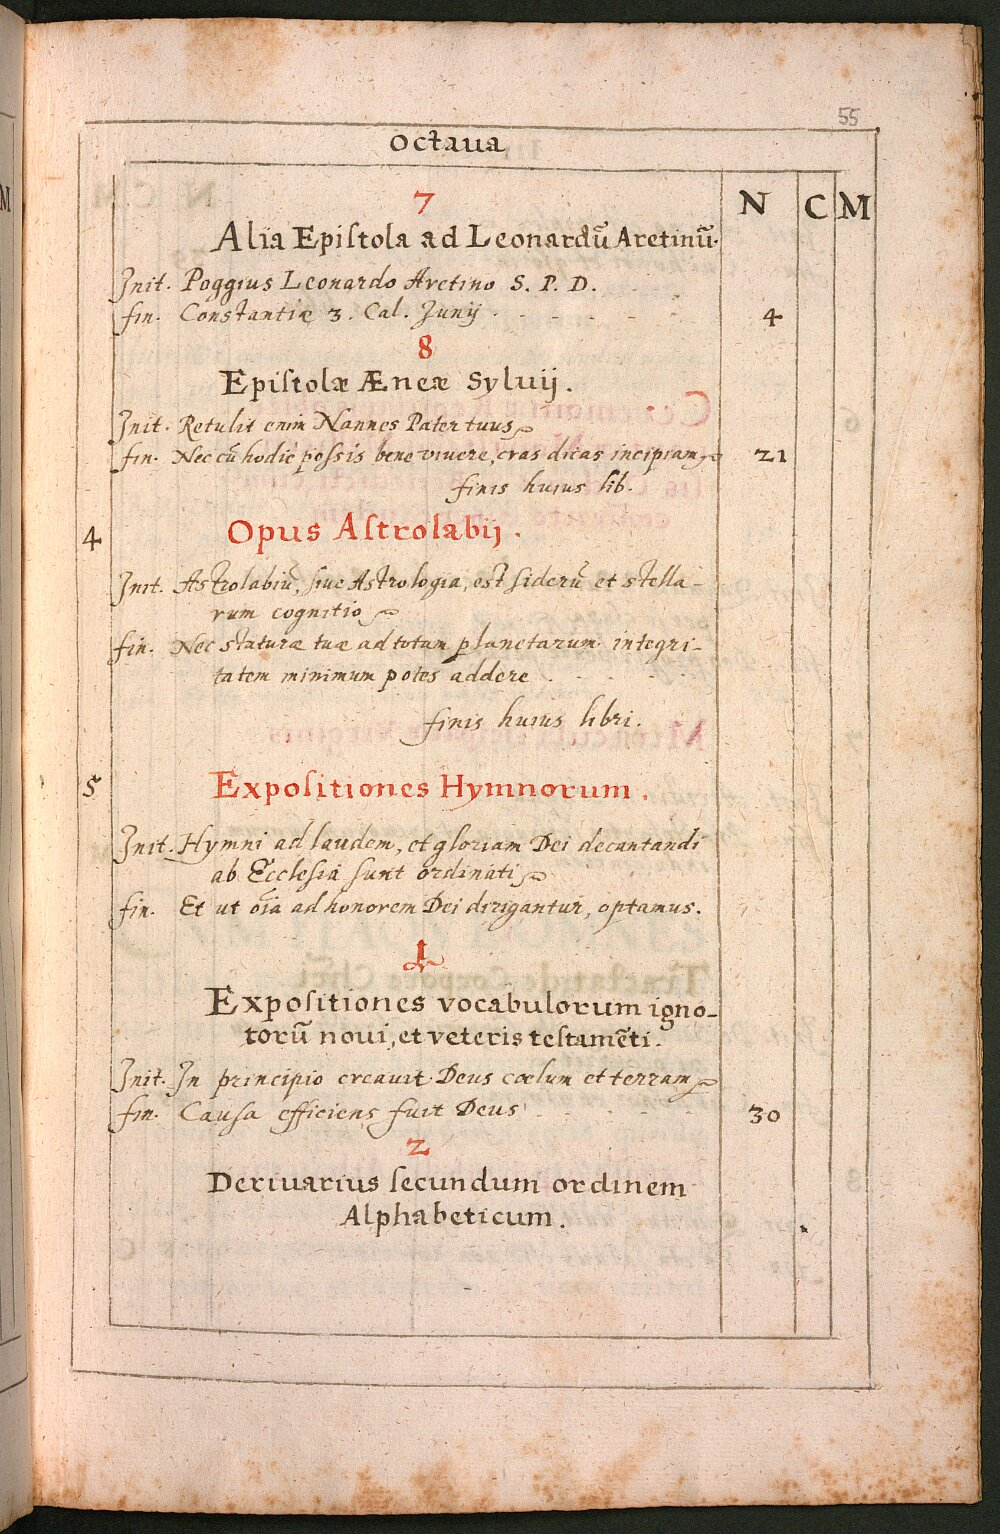 55
Octaua
N C M
7
Alia Epiſtola ad Leonardū Aretinū.
Init. Poggius Leonardo Aretino S. P. D.
fin. Constantiæ 3. Cal. Junij 4
8
Epiſtolæ Æneæ Syluij.
Init. Retulit enim Nannes Pater tuus
fin. Nec cū hodie possis bene viuere, cras dicas incipiam 21
finis huius lib.
4 Opus Aſtrolabij.
Init. Astrolabiū, siue Astrologia, est siderū et stella-
rum cognitio
fin. Nec staturæ tuæ ad totam planetarum integri-
tatem minimum potes addere
finis huius libri.
5 Expoſitiones Hymnorum.
Init. Hymni ad laudem, et gloriam Dei decantandi
ab Ecclesia sunt ordinati
fin. Et ut oīa ad honorem Dei dirigantur, optamus.
1
Expoſitiones vocabulorum igno-
torū noui, et veteris teſtamēti.
Init. In principio creauit Deus cœlum et terram
fin. Causa efficiens fuit Deus 30
2
Deriuarius ſecundum ordinem
Alphabeticum.